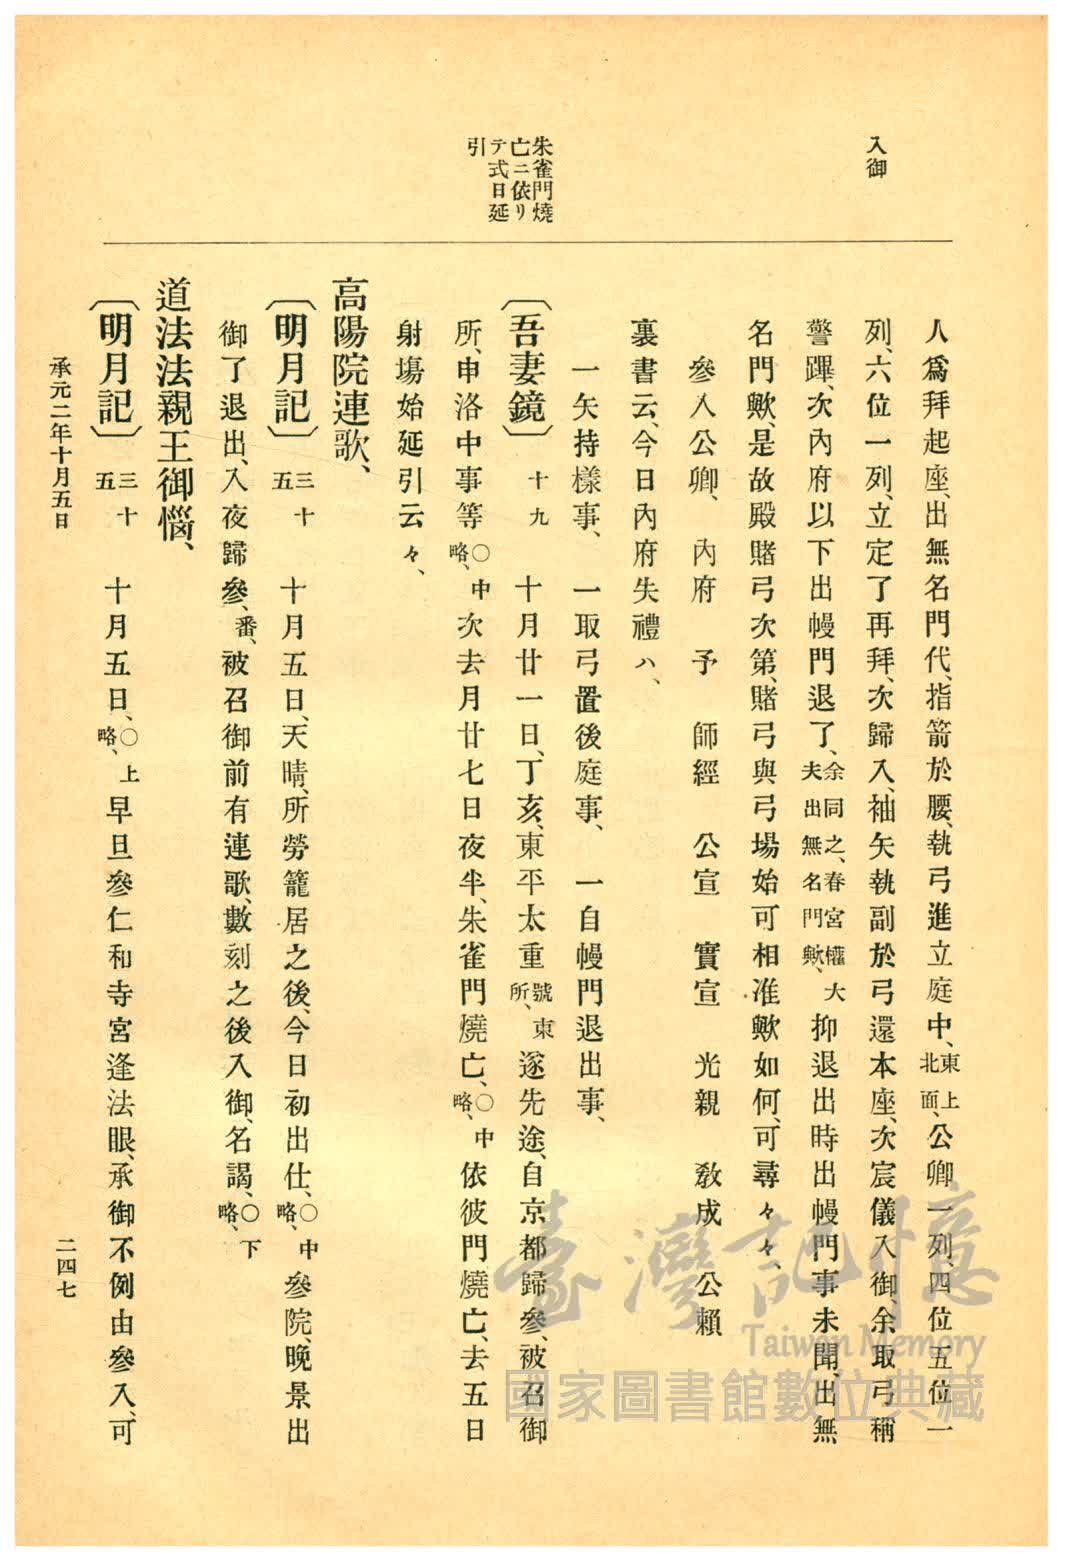 入御
朱雀門燒
亡ニ依リ
テ式日延
引
人爲拜起座、出無名門代、指箭於腰、執弓進立庭中、東上北面、公卿一列、四位五位一
列、六位一列、立定了再拜、次歸入、袖矢執副於弓還本座、次宸儀入御、余取弓稱
警蹕、次內府以下出幔門退了、余同之、春宮權大夫出無名門歟、抑退出時出幔門事未聞、出無
名門歟、是故殿賭弓次第、賭弓與弓場始可相准歟如何、可尋々々、
參入公卿、 內府 予 師經 公宣 實宣 光親 敎成 公賴
裏書云、今日內府失禮ハ、
一矢持樣事、 一取弓置後庭事、 一自幔門退出事、
〔吾妻鏡〕 十九 十月廿一日、丁亥、東平太重號東所、遂先途、自京都歸參、被召御
所、申洛中事等〇中略、次去月廿七日夜半、朱雀門燒亡、〇中略、依彼門燒亡、去五日
射塲始延引云々、
高陽院連歌、
〔明月記〕 三十五 十月五日、天晴、所勞籠居之後、今日初出仕、〇中略、參院、晚景出
御了退出、入夜歸參、番、被召御前有連歌、數刻之後入御、名謁、〇下略、
道法法親王御惱、
〔明月記〕 三十五 十月五日、〇上略、早旦參仁和寺宮逢法眼、承御不例由參入、可
承元二年十月五日
二四七
臺灣記憶
Taiwan Memory
國家圖書館數位典藏